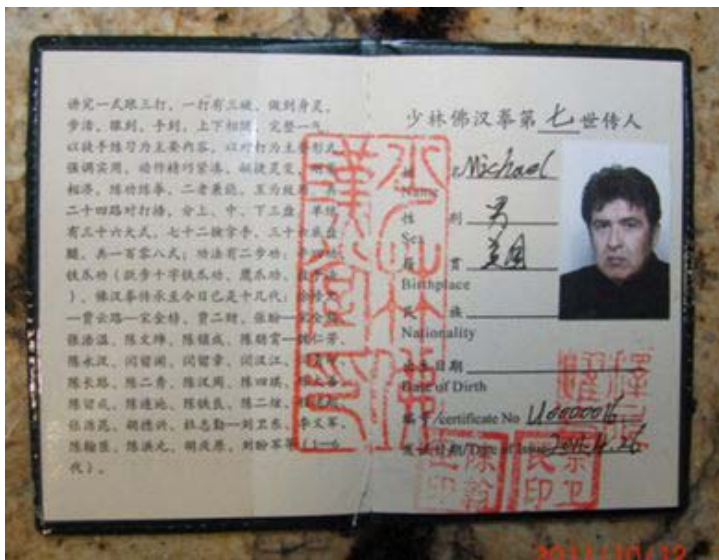 讲究一式跟三打，一打有三破，做到身灵、
步活、眼到、手到，上下相随，完整一气
以徒手练习为主要内容，以对打为主要形式
强调实用，动作精巧紧凑，敏捷灵变，
相济，练功练拳，二者兼能，互为
二十四路对打捶，分上、中、下三盘，单练
有三十六大式，七十二擒拿手，三十六底盘
腿，共一百零八式；功法有二步功：
铁爪功（跃步十字铁爪功、鹰爪功、
）。佛汉拳传承至今日已是十几代：
—贾云路—宋金榜，贾二财、张盼
张洛温、陈文绅、陈镇成、陈朋赏
陈永汉、闫留阁、闫留章、闫汉江、
陈长路、陈二秀、陈汉周、陈四琪、
陈留成、陈进地、陈铁良、陈二煌、
张洛昆、胡德兴、杜忠勤—刘卫东、李文军、
陈翰臣、陈洪元、胡茂原、刘盼军等（1—6
代）。
少林佛汉拳第七世传人
姓 名 Michael
Name
性 别 男
Sex
籍 贯 美国
Birthplace
民 族
Nationality
出生日期
Date of Birth
编号/certificate No U0000016
发证日期/Date of Issue 2011.4.26
少林佛
漢拳
宗卫
民印
陈翰
臣印
2011/10/13